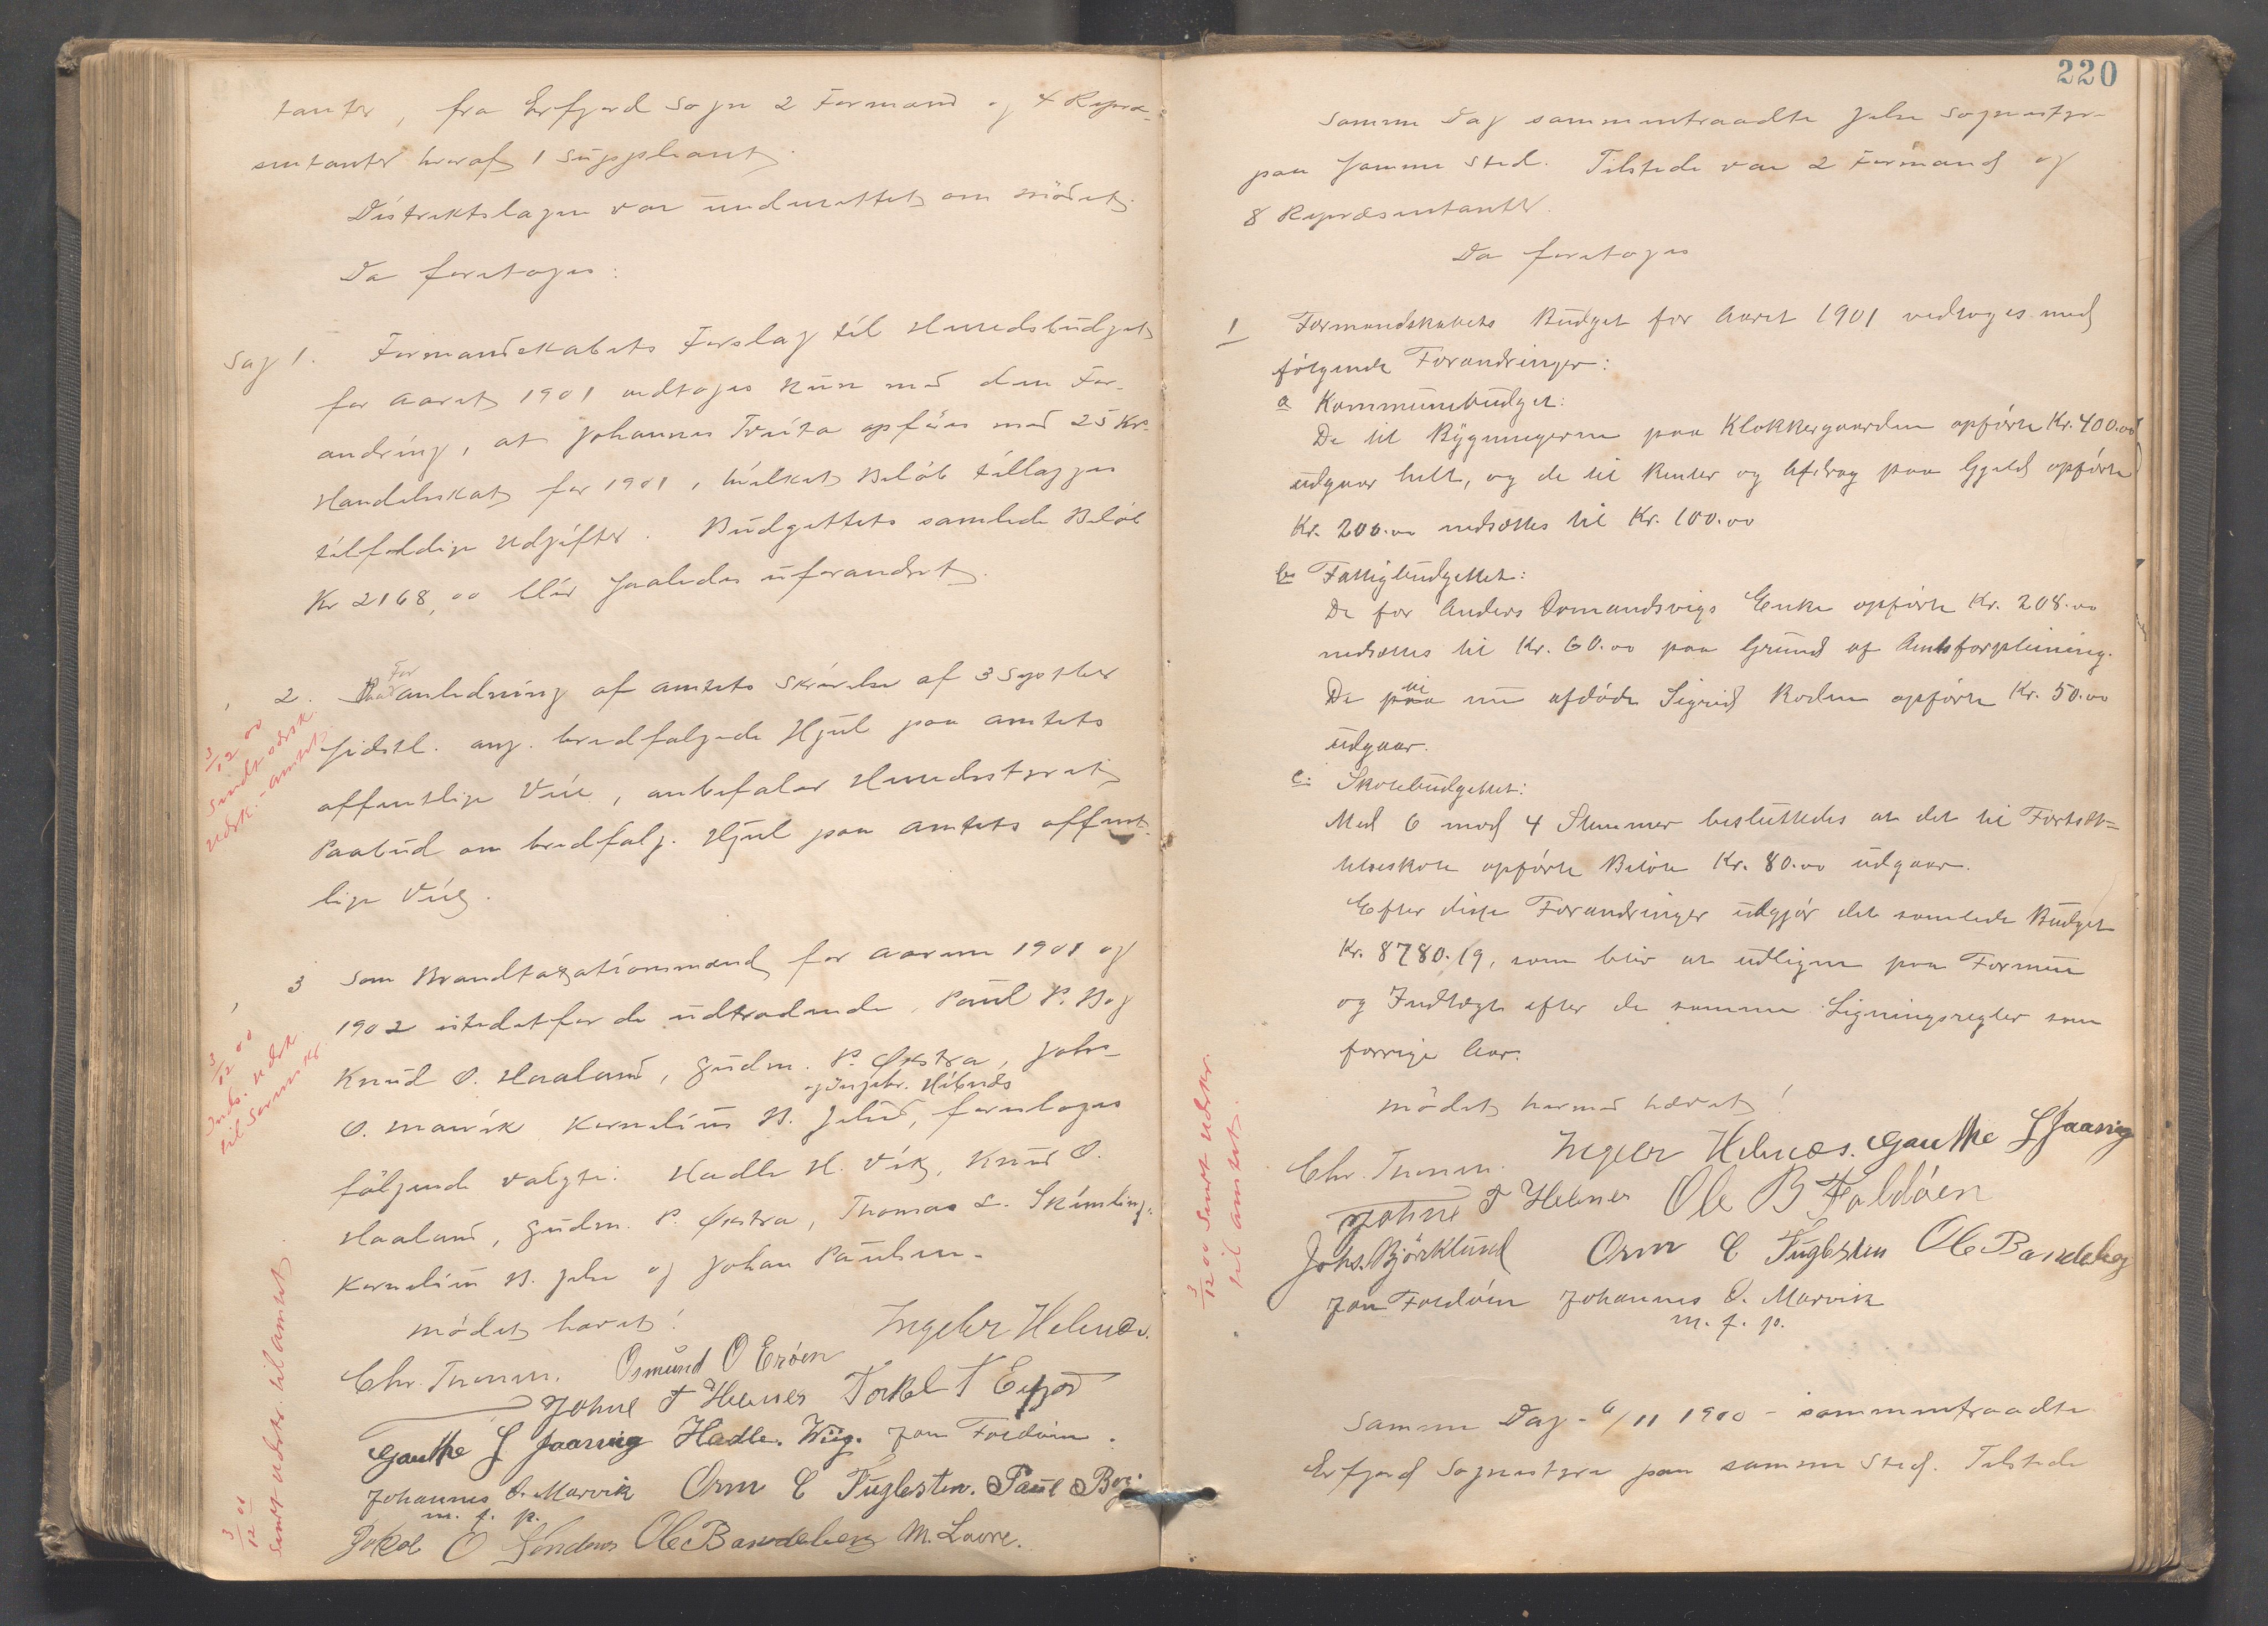 tanter, fra Erfjord Sogn 2 Formænd og 4 Repræ-
sentanter hvoraf 1 Suppleant.
Distriktslægen var underrettet om mödet.
Da foretoges:
Sag 1. Formandskabets Forslag til Herredsbudget
for Aaret 1901 vedtoges kun med den For-
andring, at Johannes Tveita opföres med 25 Kr.
Handelsskat for 1901, hvilket Belöb tillægges
tilfældige Udgifter. Budgettets samlede Belöb
Kr 2168,00 blir saaledes uforandret.
2. For anledning af Amtets Skrivelse af 3 Septbr
sidstl. ang. bredfælgede Hjul paa Amtets
offentlige Veie, anbefaler Herredsstyret
Paabud om bredfælg. Hjul paa Amtets offent-
lige Veie.
3/12 00
Sendt særsk.
Udsk. - Amtet.
3 Som Brandtaxationsmænd for Aarene 1901 og
1902 istedetfor de udtrædende, Paul P. Bog
Knud O. Haaland, Gudm. P. Økstra, Johs
og Ingebr. Helenæs
O. Marvik Kornelius B. Jelse, foresloges
fölgende valgte: Hadle H. Vik, Knud O.
Haaland, Gudm. P. Økstra, Thomas L. Skimling,
Kornelius B. Jelse og Johan Paulsen.
3/12 00
Inds. Udskr.
til Sorenskr.
Mödet hævet!
Ingebr Helenæs.
Chr. Thomsen. Osmund O Eröen
Johne T Helenes Torkel T Erfjord
Gauthe G Jaasving Hadle. Wiig. Jon Foldöen.
Johannes O. Marvik Orm E Fuglesten. Paul Bog.
m. f. p.
Jakob O Söndenaa Ole Bandeberg M. Lavre.
3/12 00
Sendt Udskr. til Amtet.
220
Samme Dag sammentraadte Jelse Sognestyre
paa samme Sted. Tilstede var 2 Formænd og
8 Repræsentanter.
Da foretoges
1 Formandskabets Budget for Aaret 1901 vedtoges med
følgende Forandringer:
a Kommunebudget:
De til Bygningerne paa Klokkergaarden opførte Kr. 400.00
udgaar helt, og de til Renter og Afdrag paa Gjæld opførte
Kr. 200.00 nedsættes til Kr. 100.00
b Fattigbudgettet:
De for Anders Aamandsvigs Enke opførte Kr. 208.00
nedsættes til Kr. 60.00 paa Grund af Amtsforpleining.
De til nu afdøde Sigrid Roden opførte Kr. 50.00
udgaar.
c. Skolebudgettet:
Med 6 mod 4 Stemmer besluttedes at det til Fortsæt-
telsesskole opførte Beløb Kr. 80.00 udgaar.
Efter disse Forandringer udgjør det samlede Budget
Kr. 8780.19, som blir at udligne paa Formue
og Indtægt efter de samme Ligningsregler som
forrige Aar.
Mödet hermed hævet!
3/12 00 Sendt Udskr.
til Amtet.
Chr. Thomsen. Ingebr Helenæs. Gauthe G Jaasving
Johne T Helenes Ole B Foldöen
Johs. Björklund Orm E Fuglesten Ole Bandeberg
Jon Foldöen Johannes O. Marvik
m. f. p.
Samme Dag - 6/11 1900 - sammentraadte
Erfjord Sognestyre paa samme Sted. Tilstede